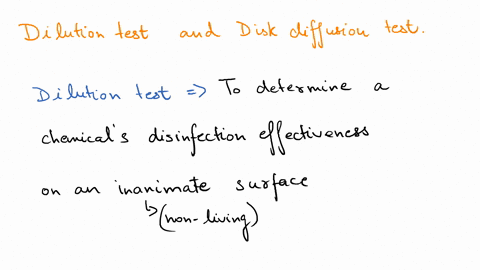 Dilution test and Disk diffusion test.
Dilution test => To determine a
chemical's disinfection effectiveness
on an inanimate surface
↳ (non-living)